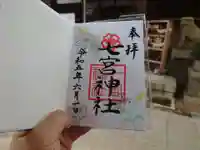 奉拝
七宮神社
令和五年六月一日